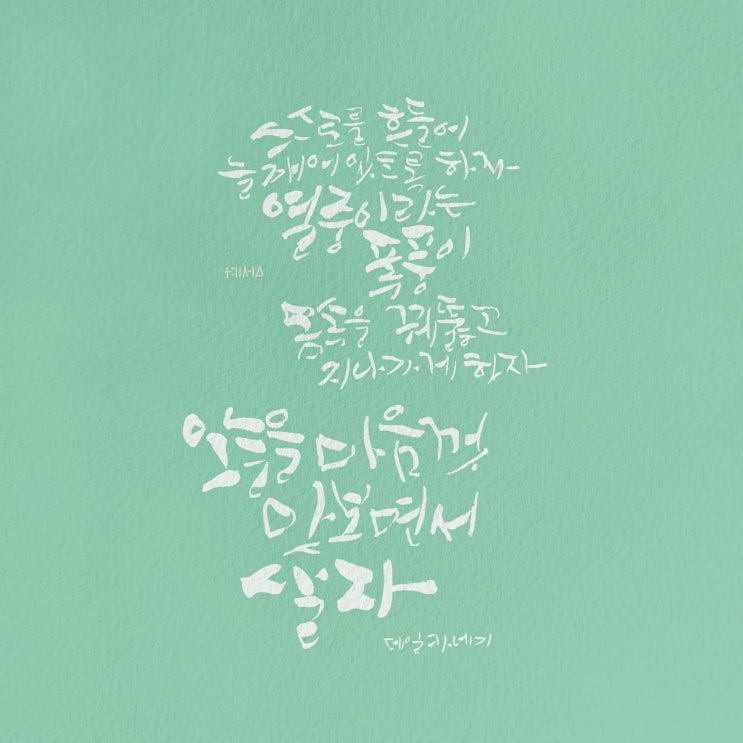 스스로를 흔들어
늘 깨어있도록 하자
열중이라는
폭풍이
몸속을 꿰뚫고
지나가게 하자
오늘을 마음껏
맛보면서
살자
데일 카네기